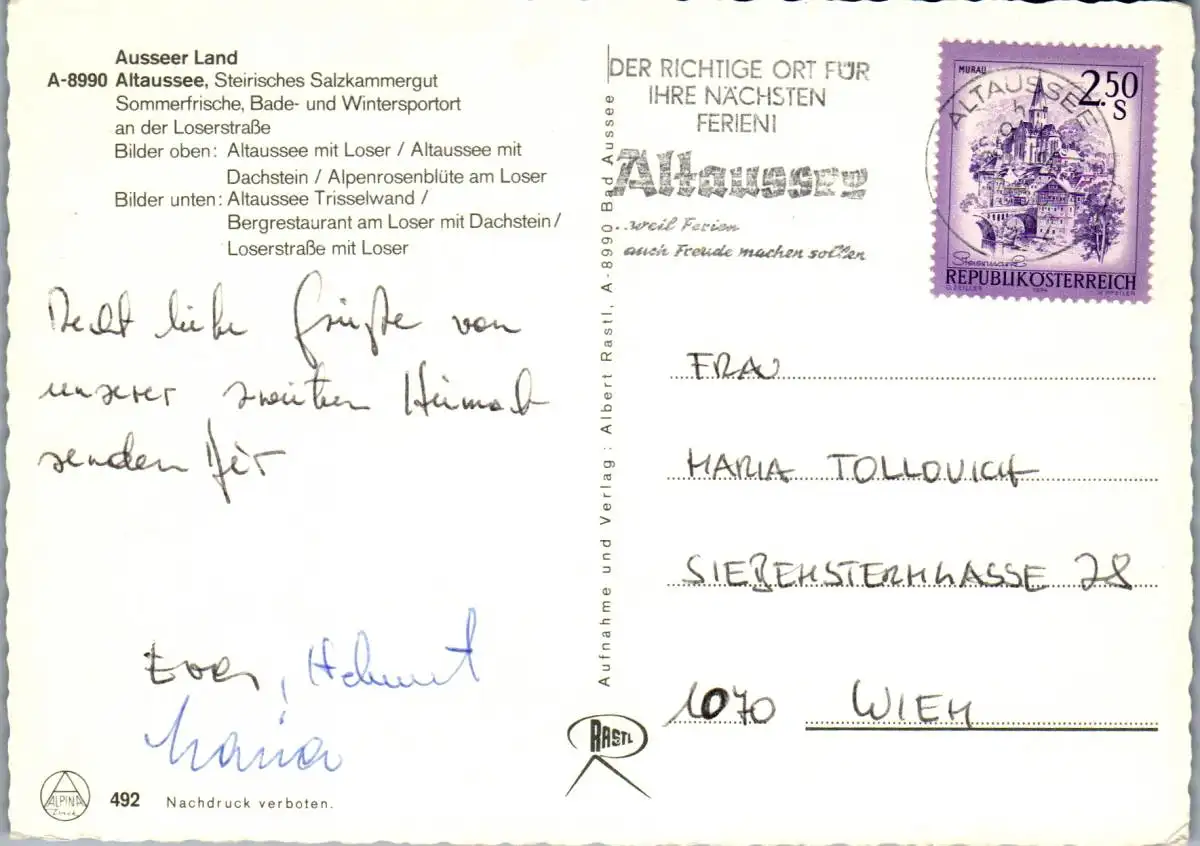 Ausseer Land
A-8990 Altaussee, Steirisches Salzkammergut
Sommerfrische, Bade- und Wintersportort
an der Loserstraße
Bilder oben: Altaussee mit Loser / Altaussee mit
Dachstein / Alpenrosenblüte am Loser
Bilder unten: Altaussee Trisselwand /
Bergrestaurant am Loser mit Dachstein /
Loserstraße mit Loser
Recht liebe Grüße von
unserer zweiten Heimat
senden Dir
Eva, Helmut
Maria
ALPINA
492 Nachdruck verboten.
Aufnahme und Verlag: Albert Rastl, A-8990 Bad Aussee
RASTL
DER RICHTIGE ORT FÜR
IHRE NÄCHSTEN
FERIEN!
Altaussee
..weil Ferien
auch Freude machen sollen
ALTAUSSEE
MURAU
2.50
S
Steiermark
REPUBLIK ÖSTERREICH
FRAU
MARIA TOLLOVICH
SIEBENSTERNGASSE 28
1070 WIEN